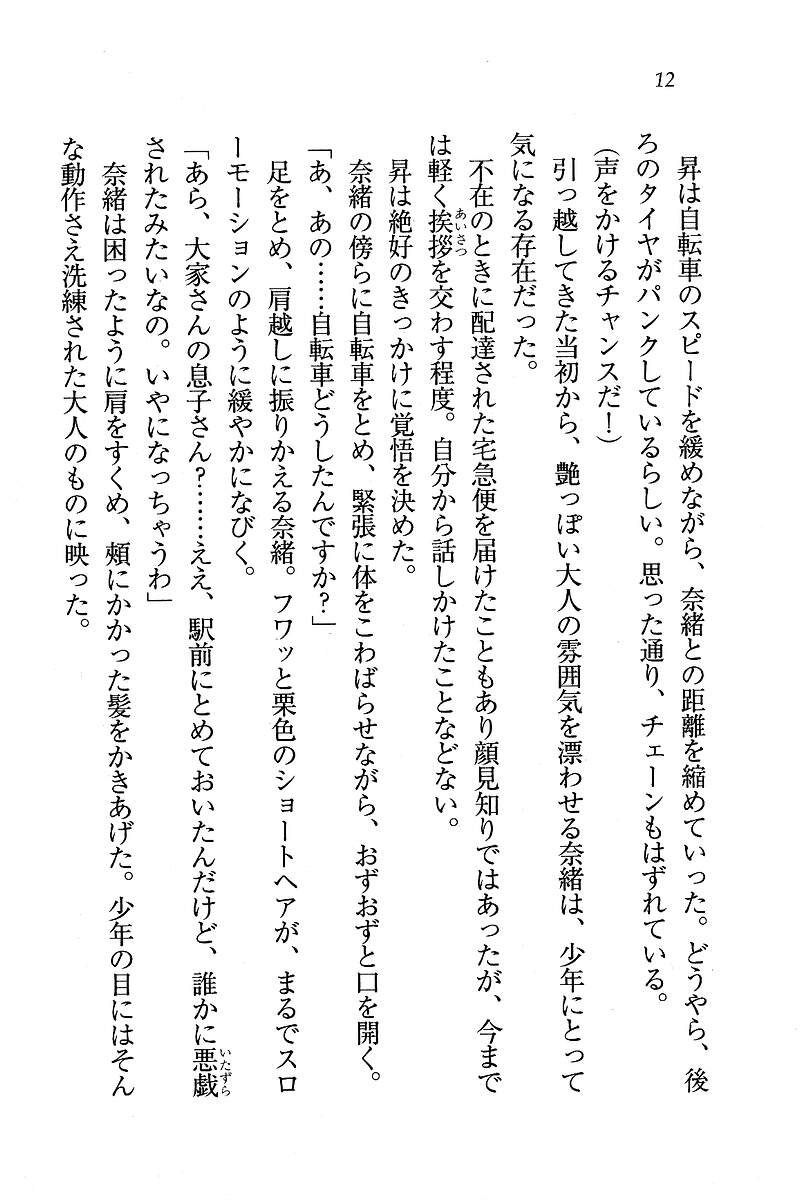 12
昇は自転車のスピードを緩めながら、奈緒との距離を縮めていった。どうやら、後
ろのタイヤがパンクしているらしい。思った通り、チェーンもはずれている。
（声をかけるチャンスだ！）
引っ越してきた当初から、艶っぽい大人の雰囲気を漂わせる奈緒は、少年にとって
気になる存在だった。
不在のときに配達された宅急便を届けたこともあり顔見知りではあったが、今まで
は軽く挨拶を交わす程度。自分から話しかけたことなどない。
あいさつ
昇は絶好のきっかけに覚悟を決めた。
奈緒の傍らに自転車をとめ、緊張に体をこわばらせながら、おずおずと口を開く。
「あ、あの……自転車どうしたんですか？」
足をとめ、肩越しに振りかえる奈緒。フワッと栗色のショートヘアが、まるでスロ
ーモーションのように緩やかになびく。
「あら、大家さんの息子さん？……ええ、駅前にとめておいたんだけど、誰かに悪戯
いたずら
されたみたいなの。いやになっちゃうわ」
奈緒は困ったように肩をすくめ、頬にかかった髪をかきあげた。少年の目にはそん
な動作さえ洗練された大人のものに映った。